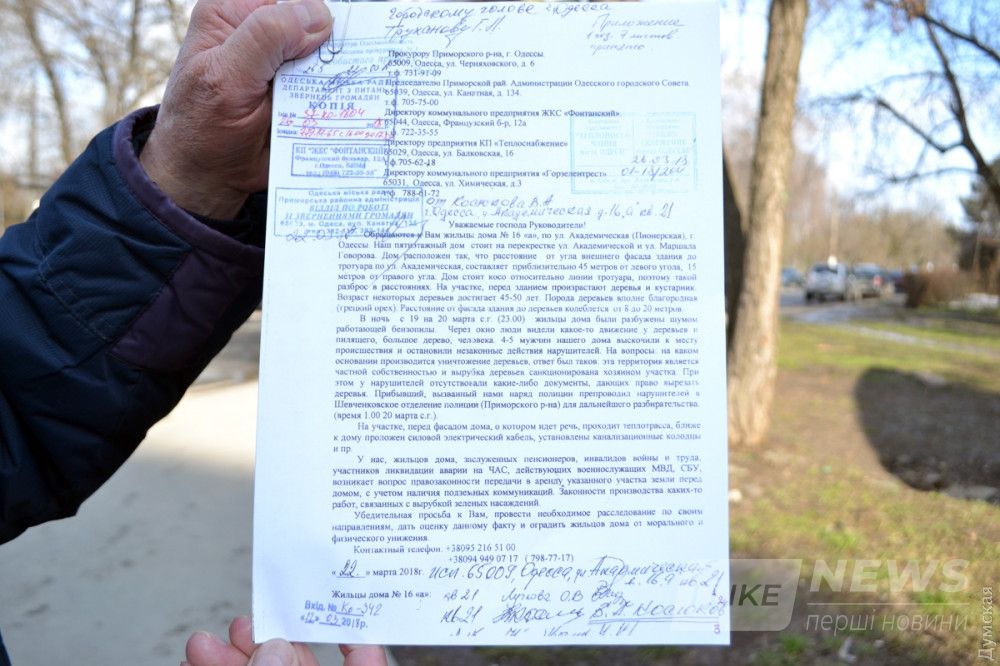 Городскому голове г. Одесса
Труханову Г.Л.
Приложение
1 экз. 7 листов
Прокурору Приморского р-на, г. Одессы
65009, Одесса, ул. Черняховского, д. 6
т.ф. 731-91-09
Председателю Приморской рай. Администрации Одесского городского Совета
65039, Одесса, ул. Канатная, д. 134.
т.ф. 705-75-00
Директору коммунального предприятия ЖКС «Фонтанский»
65044, Одесса, Французский б-р, 12а
т.ф. 722-35-55
Директору предприятия КП «Теплоснабжение»
65029, Одесса, ул. Балковская, 16
т.ф. 705-62-18
Директору коммунального предприятия «Горзелентрест»
65031, Одесса, ул. Химическая, д.3
т.ф. 788-61-72
ОДЕСЬКА МІСЬКА РАДА
ДЕПАРТАМЕНТ З ПИТАНЬ
ЗВЕРНЕНЬ ГРОМАДЯН
КОПІЯ
КП "ЖКС "ФОНТАНСКИЙ"
Французский бульвар, 12А
г.Одесса, 65044
тел. (048) 722-35-55
Одеська міська рада
Приморська районна адміністрація
ВІДДІЛ ПО РОБОТІ
ІЗ ЗВЕРНЕННЯМИ ГРОМАДЯН
26.03.18
от Косюкова В.А
г. Одесса, ул Академическая д. 16„а" кв. 21
Уважаемые господа Руководители!
Обращаются к Вам жильцы дома № 16 «а», по ул. Академической (Пионерская), г.
Одессы. Наш пятиэтажный дом стоит на перекрестке ул. Академической и ул. Маршала
Говорова. Дом расположен так, что расстояние от угла внешнего фасада здания до
тротуара по ул. Академическая, составляет приблизительно 45 метров от левого угола, 15
метров от правого угла. Дом стоит косо относительно линии тротуара, поэтому такой
разброс в расстояниях. На участке, перед зданием произрастают деревья и кустарник.
Возраст некоторых деревьев достигает 45-50 лет. Порода деревьев вполне благородная
(грецкий орех). Расстояние от фасада здания до деревьев колеблется от 8 до 20 метров.
В ночь с 19 на 20 марта с.г. (23.00) жильцы дома были разбужены шумом
работающей бензопилы. Через окно люди видели какое-то движение у деревьев и
пилящего, большое дерево, человека. 4-5 мужчин нашего дома выскочили к месту
происшествия и остановили незаконные действия нарушителей. На вопросы: на каком
основании производится уничтожение деревьев, ответ был таков: эта территория является
частной собственностью и вырубка деревьев санкционирована хозяином участка. При
этом у нарушителей отсутствовали какие-либо документы, дающих право вырезать
деревья. Прибывший, вызванный нами наряд полиции препроводил нарушителей в
Шевченковское отделение полиции (Приморского р-на) для дальнейшего разбирательства.
(время 1.00 20 марта с.г.).
На участке, перед фасадом дома, о котором идет речь, проходит теплотрасса, ближе
к дому проложен силовой электрический кабель, установлены канализационные колодцы
и пр.
У нас, жильцов дома, заслуженных пенсионеров, инвалидов войны и труда,
участников ликвидации аварии на ЧАС, действующих военнослужащих МВД, СБУ,
возникает вопрос правозаконности передачи в аренду указанного участка земли перед
домом, с учетом наличия подземных коммуникаций. Законности производства каких-то
работ, связанных с вырубкой зеленых насаждений.
Убедительная просьба к Вам, провести необходимое расследование по своим
направлениям, дать оценку данному факту и оградить жильцов дома от морального и
физического унижения.
Контактный телефон. +38095 216 51 00
+38094 949 07 17 ( 798-77-17)
«22» марта 2018г. исп. 65009, Одесса, ул Академическая
д. 16„а кв 21
Жильцы дома № 16 «а»: кв 21
кв 21
Вхід. № Ко-342
LIKE NEWS
перші новини
Думская